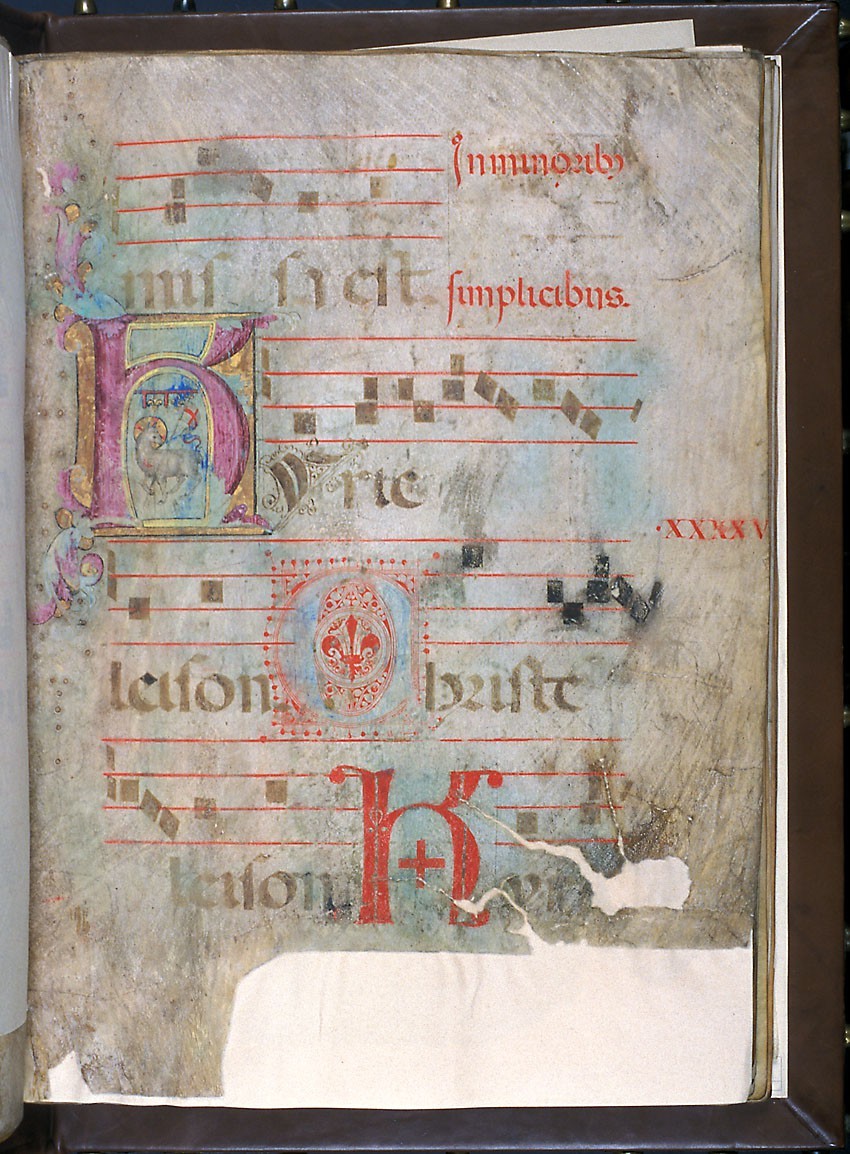 In minoribꝫ
mis sa est. simplicibus.
Kyrie
·XXXXV
leison Christe
leison Kyri